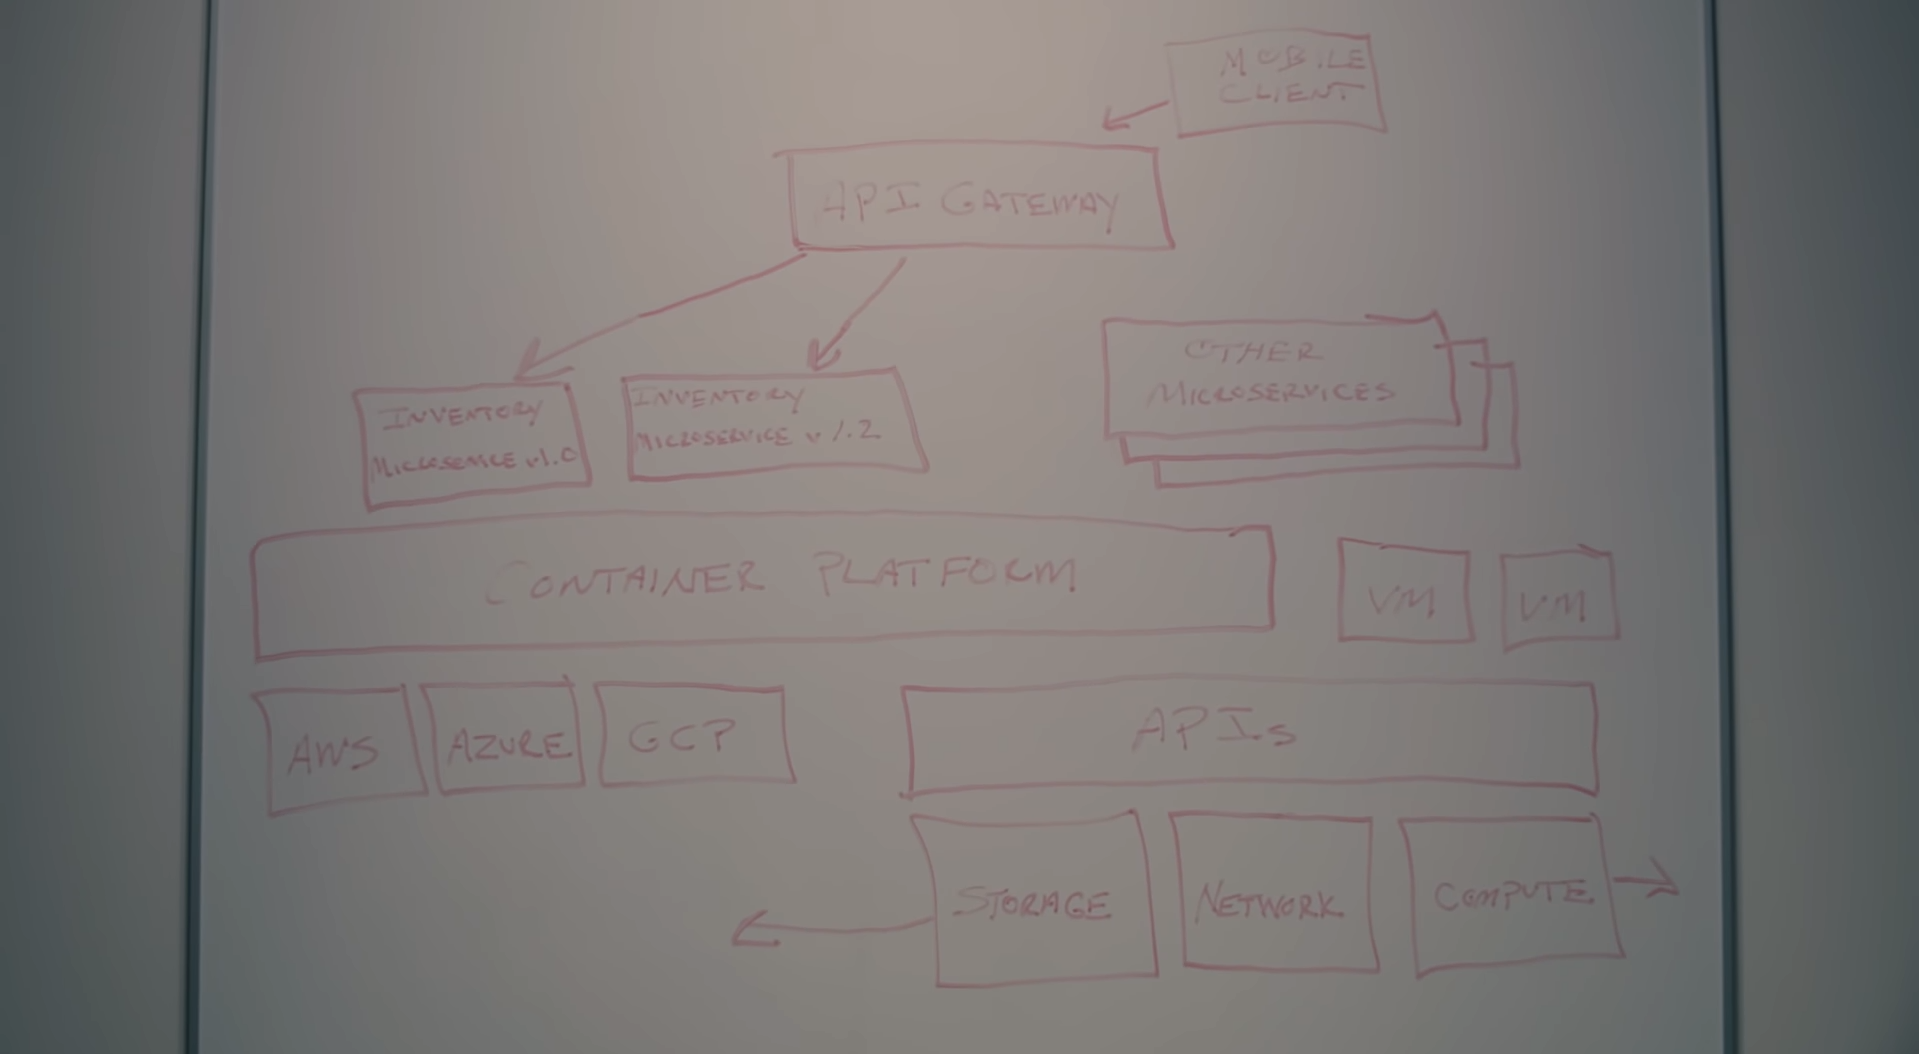 MOBILE
CLIENT
API GATEWAY
INVENTORY
MICROSERVICE v1.0
INVENTORY
MICROSERVICE v 1.2
OTHER
MICROSERVICES
CONTAINER PLATFORM
VM
VM
AWS
AZURE
GCP
APIs
STORAGE
NETWORK
COMPUTE